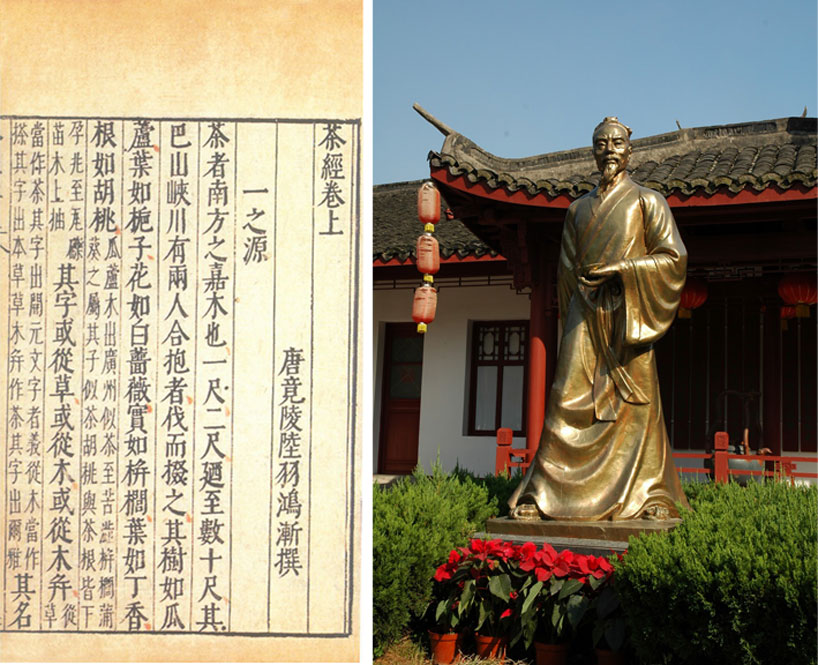 茶經卷上
唐竟陵陸羽鴻漸撰
一之源
茶者南方之嘉木也一尺二尺廻至數十尺其
巴山峽川有兩人合抱者伐而掇之其樹如瓜
蘆葉如梔子花如白薔薇實如栟櫚葉如丁香
根如胡桃瓜蘆木出廣州似茶至苦澁栟櫚蒲
葵之屬其子似茶胡桃與茶根皆下
孕兆至瓦礫
苗木上抽其字或從草或從木或從木并從
草
當作茶其字出開元文字者義從木當作
搽其字出本草草木并作茶其字出爾雅其名